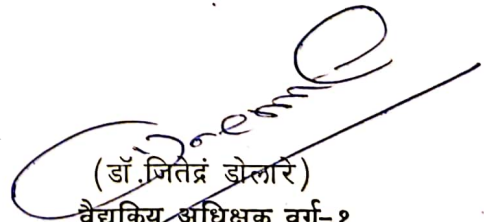 (डॉ.जितेद्रं डोलारे)
वैद्यकिय अधिक्षक वर्ग-१